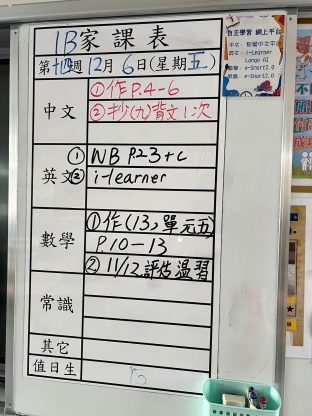 1B家課表
第十四週12月6日(星期五)
中文
①作P.4-6
②抄(九)背文1次
英文
① WB P.23+c
② i-learner
數學
①作(13,單元五)
P.10-13
②11/12評估溫習
常識
其它
值日生
15
自主學習 網上平台
英文: i-Learner
Lango AI
數學: e-Smart2.0
常識: e-Smart2.0